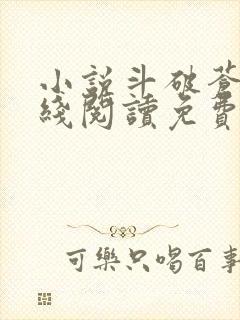 小説斗破蒼
綫閱讀免費
可樂只喝百事